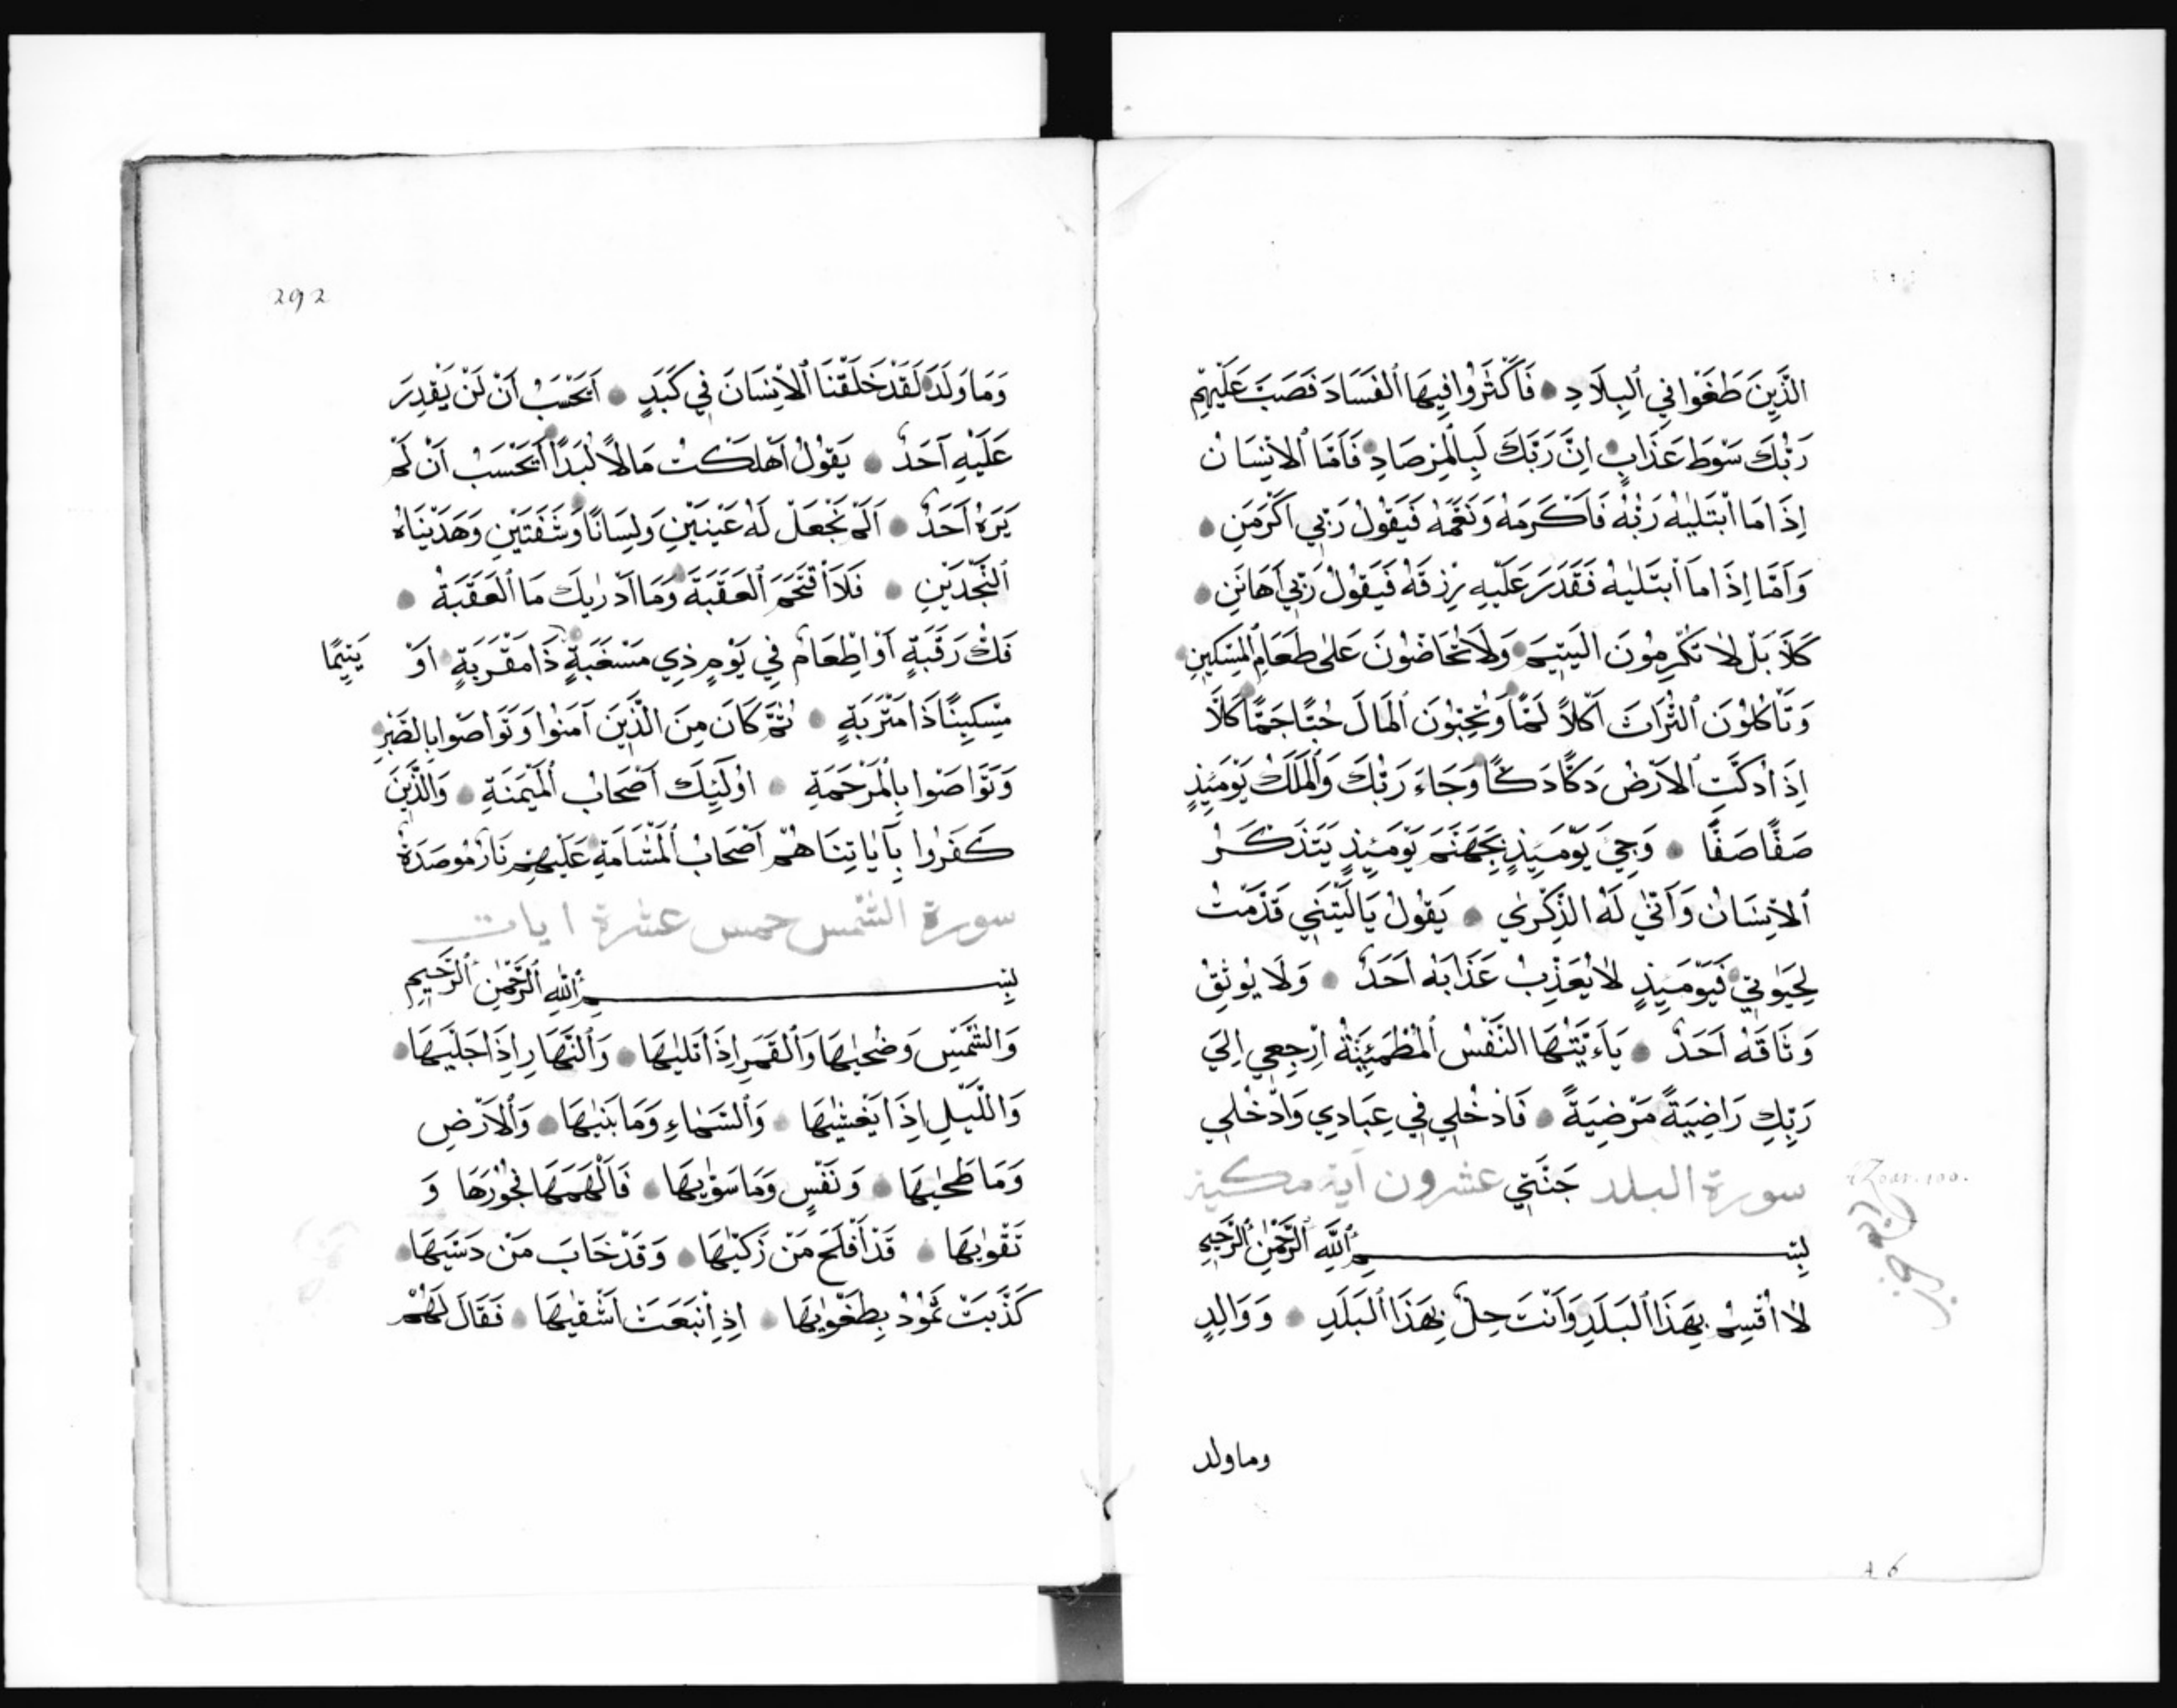 الَّذِينَ طَغَوْا فِي ٱلبِلَادِ فَاَكْثَرُوا فِيهَا ٱلفَسَادَ فَصَبَّ عَلَيْهِمْ
رَبُّكَ سَوْطَ عَذَابٍ اِنَّ رَبَّكَ لَبِالْمِرْصَادِ فَاَمَّا ٱلاِنْسَانُ
اِذَا مَا ٱبْتَلٰيهُ رَبُّهُ فَاَكْرَمَهُ وَنَعَّمَهُ فَيَقُولُ رَبِّي اَكْرَمَنِ
وَاَمَّا اِذَا مَا ٱبْتَلٰيهُ فَقَدَرَ عَلَيْهِ رِزْقَهُ فَيَقُولُ رَبِّي اَهَانَنِ
كَلَّا بَلْ لَا تُكْرِمُونَ اليَتِيمَ وَلَا تَحَاضُّونَ عَلٰى طَعَامِ ٱلْمِسْكِينِ
وَتَأْكُلُونَ ٱلتُّرَاثَ اَكْلاً لَمًّا وَتُحِبُّونَ ٱلْمَالَ حُبًّا جَمًّا كَلَّا
اِذَا دُكَّتِ ٱلاَرْضُ دَكًّا دَكًّا وَجَاءَ رَبُّكَ وَٱلْمَلَكُ يَوْمَئِذٍ
صَفًّا صَفًّا وَجِيءَ يَوْمَئِذٍ بِجَهَنَّمَ يَوْمَئِذٍ يَتَذَكَّرُ
ٱلاِنْسَانُ وَاَنّٰي لَهُ الذِّكْرٰي يَقُولُ يَالَيْتَنِي قَدَّمْتُ
لِحَيٰوتِي فَيَوْمَئِذٍ لَا يُعَذِّبُ عَذَابَهُ اَحَدٌ وَلَا يُوثِقُ
وَثَاقَهُ اَحَدٌ يَاءَيَّتُهَا النَّفْسُ ٱلْمُطْمَئِنَّةُ اِرْجِعِي اِلَي
رَبِّكِ رَاضِيَةً مَرْضِيَةً فَادْخُلِي فِي عِبَادِي وَادْخُلِي
سورة البلد جَنَّتِي عشرون آية مكية
بِسْمِ ٱللّٰهِ ٱلرَّحْمٰنِ ٱلرَّحِيمِ
لَا اُقْسِمُ بِهَذَا ٱلبَلَدِ وَاَنْتَ حِلٌّ بِهَذَا ٱلبَلَدِ وَوَالِدٍ
وماولد
A 6
292
وَمَا وَلَدَ لَقَدْ خَلَقْنَا ٱلاِنْسَانَ فِي كَبَدٍ اَيَحْسَبُ اَنْ لَنْ يَقْدِرَ
عَلَيْهِ اَحَدٌ يَقُولُ اَهْلَكْتُ مَالاً لُبَدًا اَيَحْسَبُ اَنْ لَمْ
يَرَهُ اَحَدٌ اَلَمْ نَجْعَلْ لَهُ عَيْنَيْنِ وَلِسَانًا وَشَفَتَيْنِ وَهَدَيْنَاهُ
ٱلنَّجْدَيْنِ فَلَا ٱقْتَحَمَ ٱلعَقَبَةَ وَمَا اَدْرٰيكَ مَا ٱلعَقَبَةُ
فَكُّ رَقَبَةٍ اَوْ اِطْعَامٌ فِي يَوْمٍ ذِي مَسْغَبَةٍ يَتِيمًا ذَا مَقْرَبَةٍ اَوْ
مِسْكِينًا ذَا مَتْرَبَةٍ ثُمَّ كَانَ مِنَ الَّذِينَ آمَنُوا وَتَوَاصَوْا بِالصَّبْرِ
وَتَوَاصَوْا بِالْمَرْحَمَةِ اُولَئِكَ اَصْحَابُ ٱلْمَيْمَنَةِ وَالَّذِينَ
كَفَرُوا بِآيَاتِنَا هُمْ اَصْحَابُ ٱلْمَشْاَمَةِ عَلَيْهِمْ نَارٌ مُوصَدَةٌ
سورة الشمس خمس عشرة ايات
بِسْمِ ٱللّٰهِ ٱلرَّحْمٰنِ ٱلرَّحِيمِ
وَالشَّمْسِ وَضُحٰيهَا وَٱلْقَمَرِ اِذَا تَلٰيهَا وَٱلنَّهَارِ اِذَا جَلّٰيهَا
وَاللَّيْلِ اِذَا يَغْشٰيهَا وَٱلسَّمَاءِ وَمَا بَنٰيهَا وَٱلاَرْضِ
وَمَا طَحٰيهَا وَنَفْسٍ وَمَا سَوّٰيهَا فَاَلْهَمَهَا فُجُورَهَا وَ
تَقْوٰيهَا قَدْ اَفْلَحَ مَنْ زَكّٰيهَا وَقَدْ خَابَ مَنْ دَسّٰيهَا
كَذَّبَتْ ثَمُودُ بِطَغْوٰيهَا اِذِ ٱنْبَعَثَ اَشْقٰيهَا فَقَالَ لَهُمْ